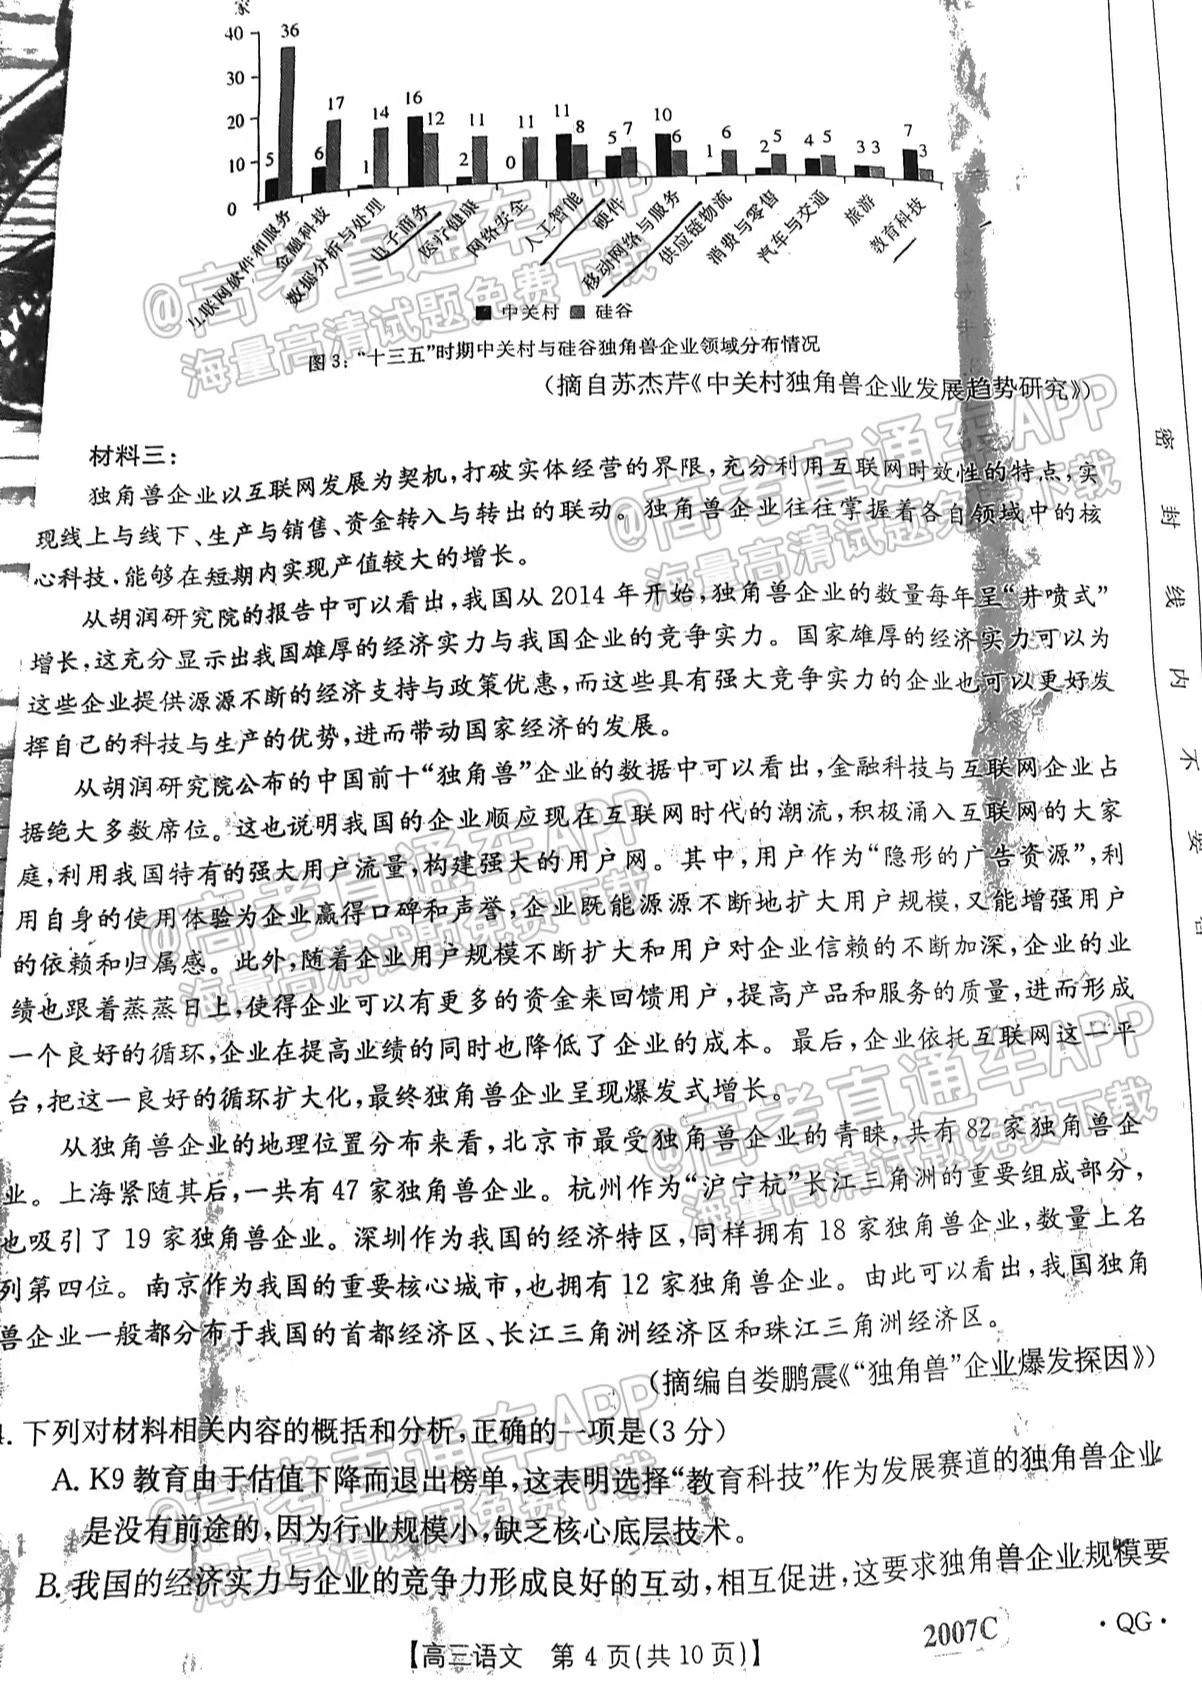 家
40
36
30
20
10
0
5 6 17 1 14 16 12 2 11 0 11 11 8 5 7 10 6 1 6 2 5 4 5 3 3 7 3
互联网软件和服务
金融科技
数据分析与处理
电子商务
医疗健康
网络安全
人工智能
硬件
移动网络与服务
供应链物流
消费与零售
汽车与交通
旅游
教育科技
中关村 硅谷
图3:“十三五”时期中关村与硅谷独角兽企业领域分布情况
(摘自苏杰芹《中关村独角兽企业发展趋势研究》)
材料三:
独角兽企业以互联网发展为契机,打破实体经营的界限,充分利用互联网时效性的特点,实
现线上与线下、生产与销售、资金转入与转出的联动。独角兽企业往往掌握着各自领域中的核
心科技,能够在短期内实现产值较大的增长。
从胡润研究院的报告中可以看出,我国从2014年开始,独角兽企业的数量每年呈“井喷式”
增长,这充分显示出我国雄厚的经济实力与我国企业的竞争实力。国家雄厚的经济实力可以为
这些企业提供源源不断的经济支持与政策优惠,而这些具有强大竞争实力的企业也可以更好发
挥自己的科技与生产的优势,进而带动国家经济的发展。
从胡润研究院公布的中国前十“独角兽”企业的数据中可以看出,金融科技与互联网企业占
据绝大多数席位。这也说明我国的企业顺应现在互联网时代的潮流,积极涌入互联网的大家
庭,利用我国特有的强大用户流量,构建强大的用户网。其中,用户作为“隐形的广告资源”,利
用自身的使用体验为企业赢得口碑和声誉,企业既能源源不断地扩大用户规模,又能增强用户
的依赖和归属感。此外,随着企业用户规模不断扩大和用户对企业信赖的不断加深,企业的业
绩也跟着蒸蒸日上,使得企业可以有更多的资金来回馈用户,提高产品和服务的质量,进而形成
一个良好的循环,企业在提高业绩的同时也降低了企业的成本。最后,企业依托互联网这一平
台,把这一良好的循环扩大化,最终独角兽企业呈现爆发式增长。
从独角兽企业的地理位置分布来看,北京市最受独角兽企业的青睐,共有82家独角兽企
业。上海紧随其后,一共有47家独角兽企业。杭州作为“沪宁杭”长江三角洲的重要组成部分,
也吸引了19家独角兽企业。深圳作为我国的经济特区,同样拥有18家独角兽企业,数量上名
列第四位。南京作为我国的重要核心城市,也拥有12家独角兽企业。由此可以看出,我国独角
兽企业一般都分布于我国的首都经济区、长江三角洲经济区和珠江三角洲经济区。
(摘编自娄鹏震《“独角兽”企业爆发探因》)
4. 下列对材料相关内容的概括和分析,正确的一项是(3分)
A. K9教育由于估值下降而退出榜单,这表明选择“教育科技”作为发展赛道的独角兽企业
是没有前途的,因为行业规模小,缺乏核心底层技术。
B. 我国的经济实力与企业的竞争力形成良好的互动,相互促进,这要求独角兽企业规模要
【高三语文 第4页(共10页)】
2007C
·QG·
密封线内不要答
@高考直通车APP
海量高清试题免费下载
@高考直通车APP
海量高清试题免费下载
@高考直通车APP
海量高清试题免费下载
@高考直通车APP
海量高清试题免费下载
@高考直通车APP
海量高清试题免费下载